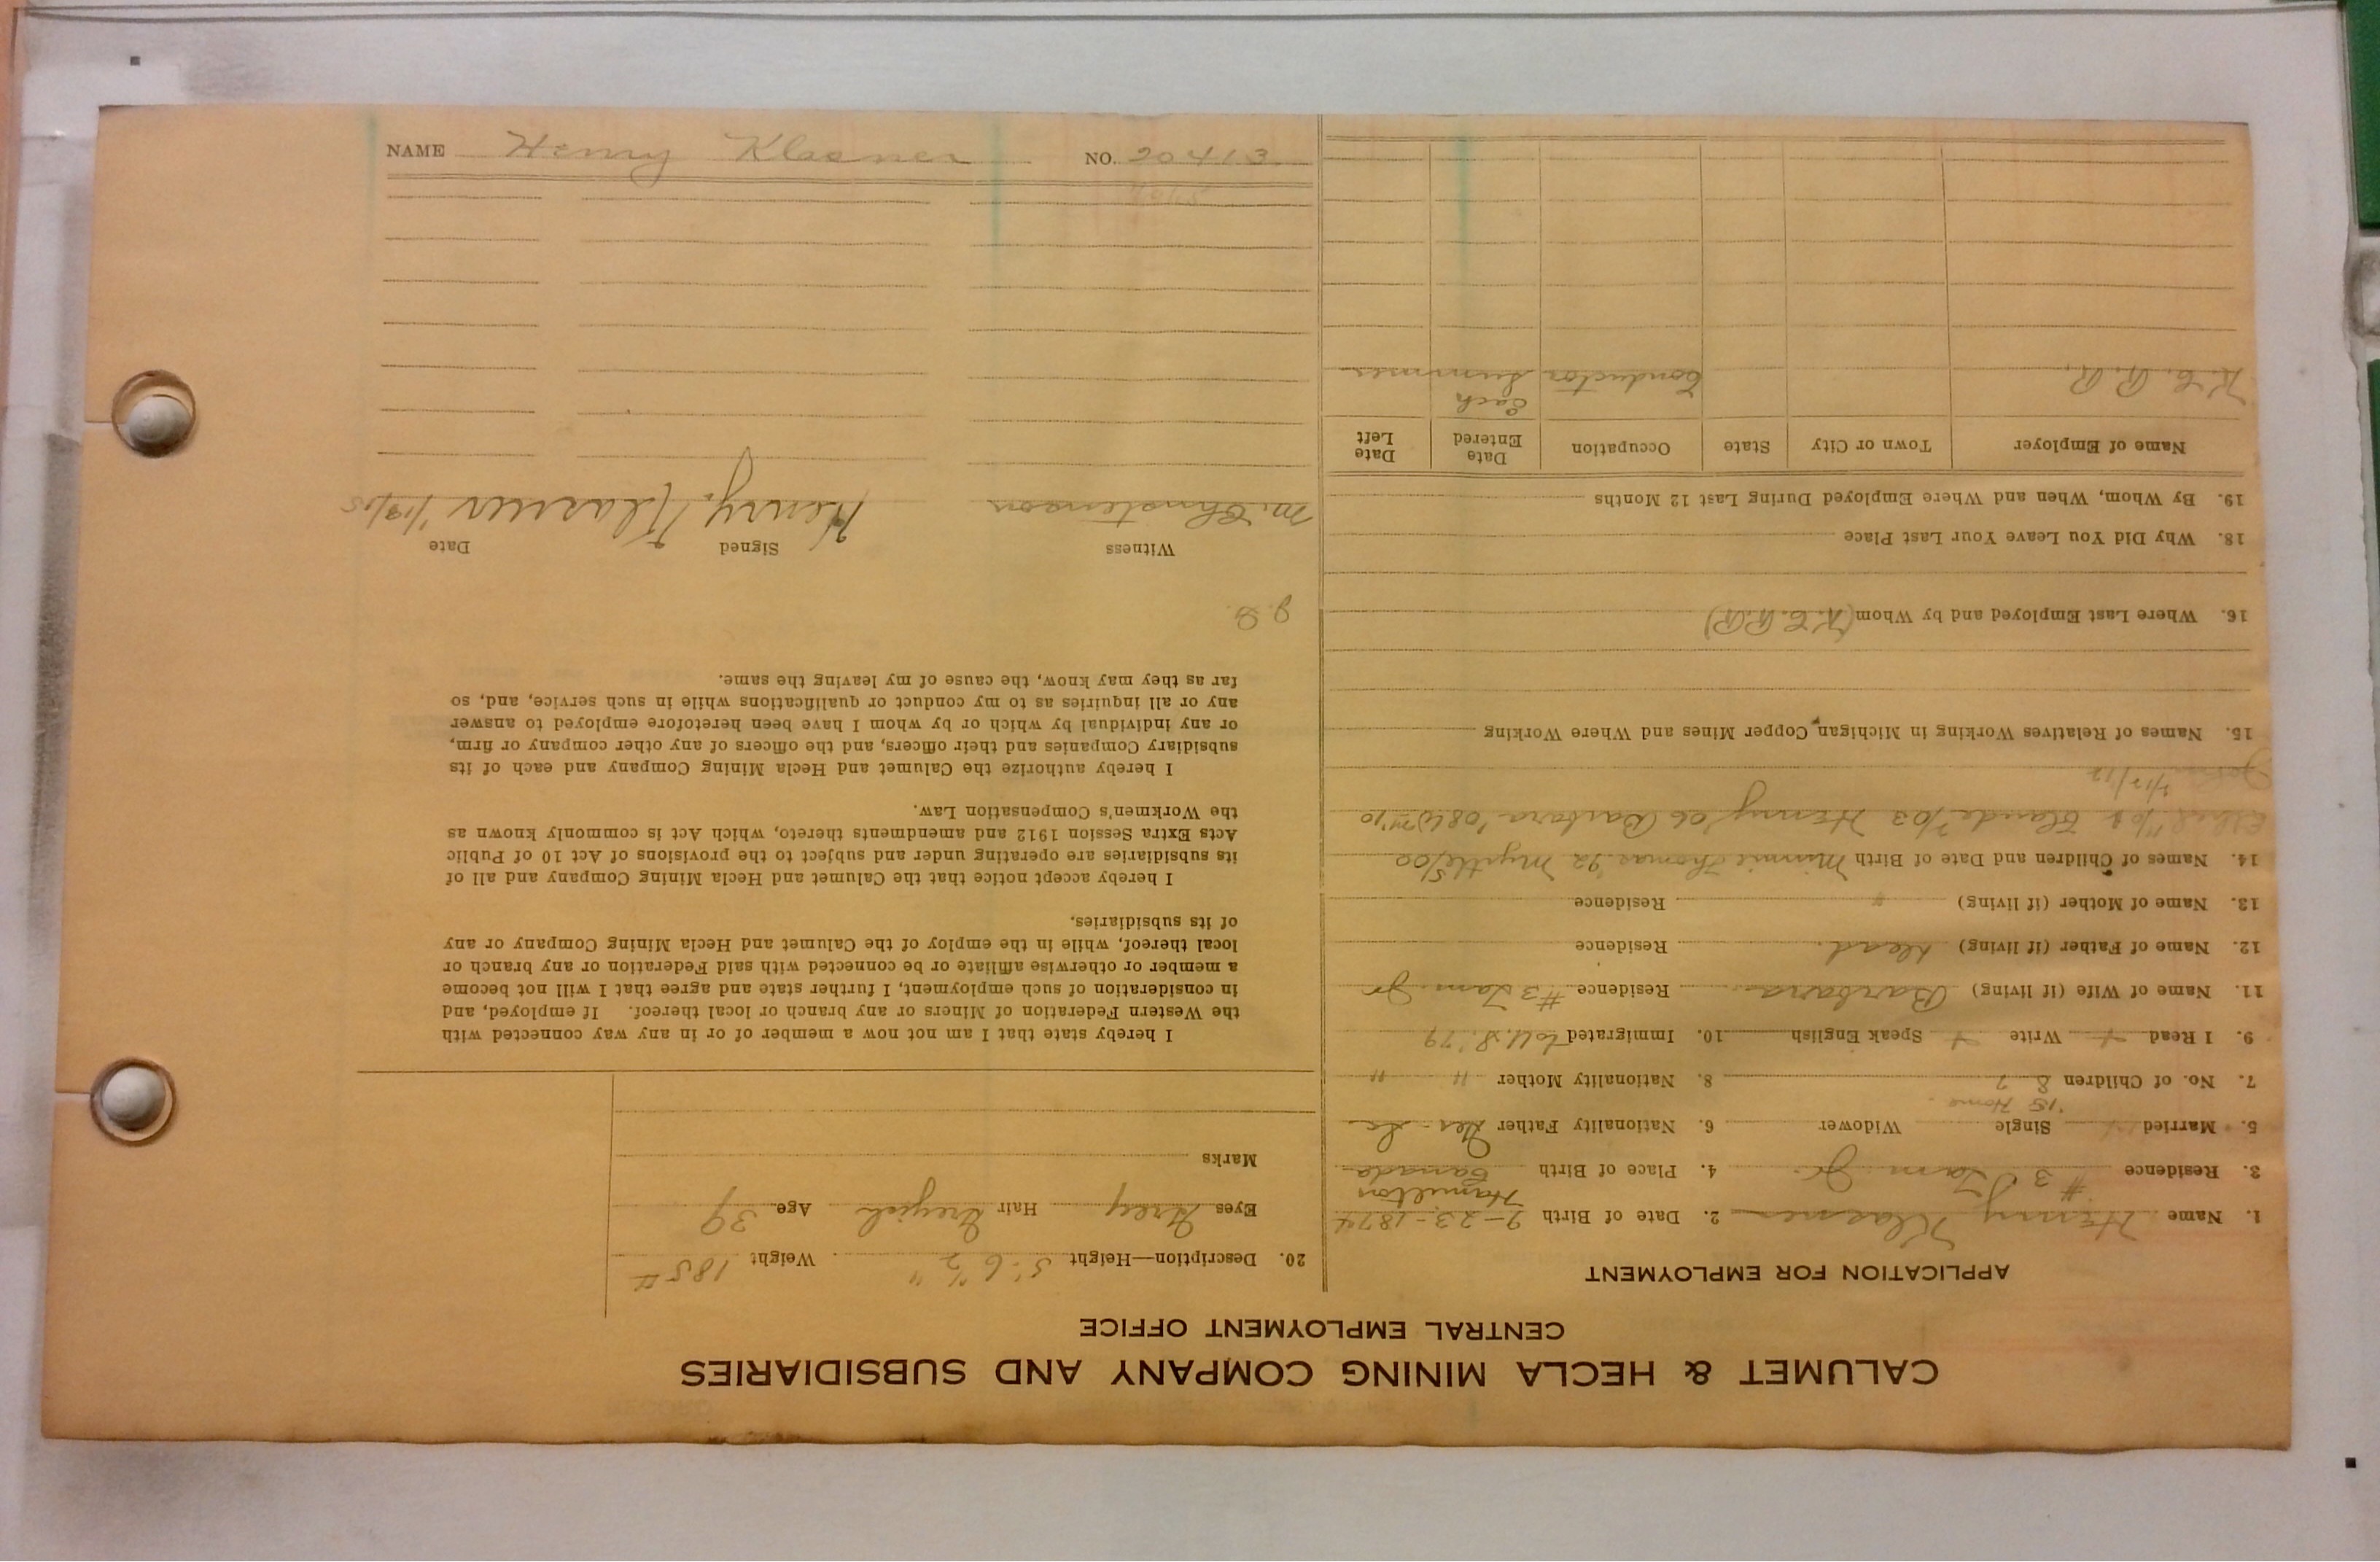 CALUMET & HECLA MINING COMPANY AND SUBSIDIARIES
CENTRAL EMPLOYMENT OFFICE
APPLICATION FOR EMPLOYMENT
1. Name Henry Klasner 2. Date of Birth 9-23-1874
Hamilton
3. Residence #3 Tam Jc 4. Place of Birth Canada
5. Married Single Widower 6. Nationality Father Ger.
'15 Home
7. No. of Children 8 7 8. Nationality Mother " "
9. I Read + Write + Speak English 10. Immigrated to U.S. '79
11. Name of Wife (if living) Barbara Residence #3 Tam. Jc
12. Name of Father (if living) dead. Residence
13. Name of Mother (if living) Residence
14. Names of Children and Date of Birth Minnie Thomas '92 Myrtle 5/00
Ethel Claude 7/03 Henry '06 Barbara '08 Wm '10
2/17/12
15. Names of Relatives Working in Michigan Copper Mines and Where Working
16. Where Last Employed and by Whom (K.C.R.R)
18. Why Did You Leave Your Last Place
19. By Whom, When and Where Employed During Last 12 Months
Name of Employer Town or City State Occupation Date Entered Date Left
Each
K.C.R.R. Conductor Summer
20. Description—Height 5' 6 1/2" Weight 185 #
Eyes Grey Hair Greyish Age 39
Marks
I hereby state that I am not now a member of or in any way connected with
the Western Federation of Miners or any branch or local thereof. If employed, and
in consideration of such employment, I further state and agree that I will not become
a member or otherwise affiliate or be connected with said Federation or any branch or
local thereof, while in the employ of the Calumet and Hecla Mining Company or any
of its subsidiaries.
I hereby accept notice that the Calumet and Hecla Mining Company and all of
its subsidiaries are operating under and subject to the provisions of Act 10 of Public
Acts Extra Session 1912 and amendments thereto, which Act is commonly known as
the Workmen's Compensation Law.
I hereby authorize the Calumet and Hecla Mining Company and each of its
subsidiary Companies and their officers, and the officers of any other company or firm,
or any individual by which or by whom I have been heretofore employed to answer
any or all inquiries as to my conduct or qualifications while in such service, and, so
far as they may know, the cause of my leaving the same.
Witness Signed Date
M. Christenson Henry Klasner 1/13/15
NAME Henry Klasner NO. 20413